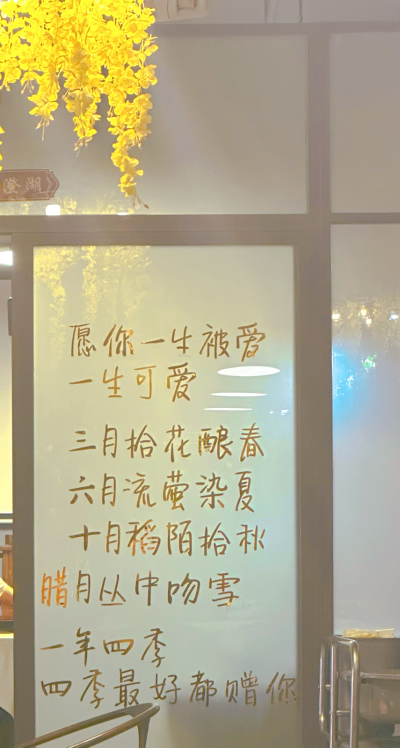 澄湖
愿你一生被爱
一生可爱
三月拾花酿春
六月流萤染夏
十月稻陌拾秋
腊月丛中吻雪
一年四季
四季最好都赠你